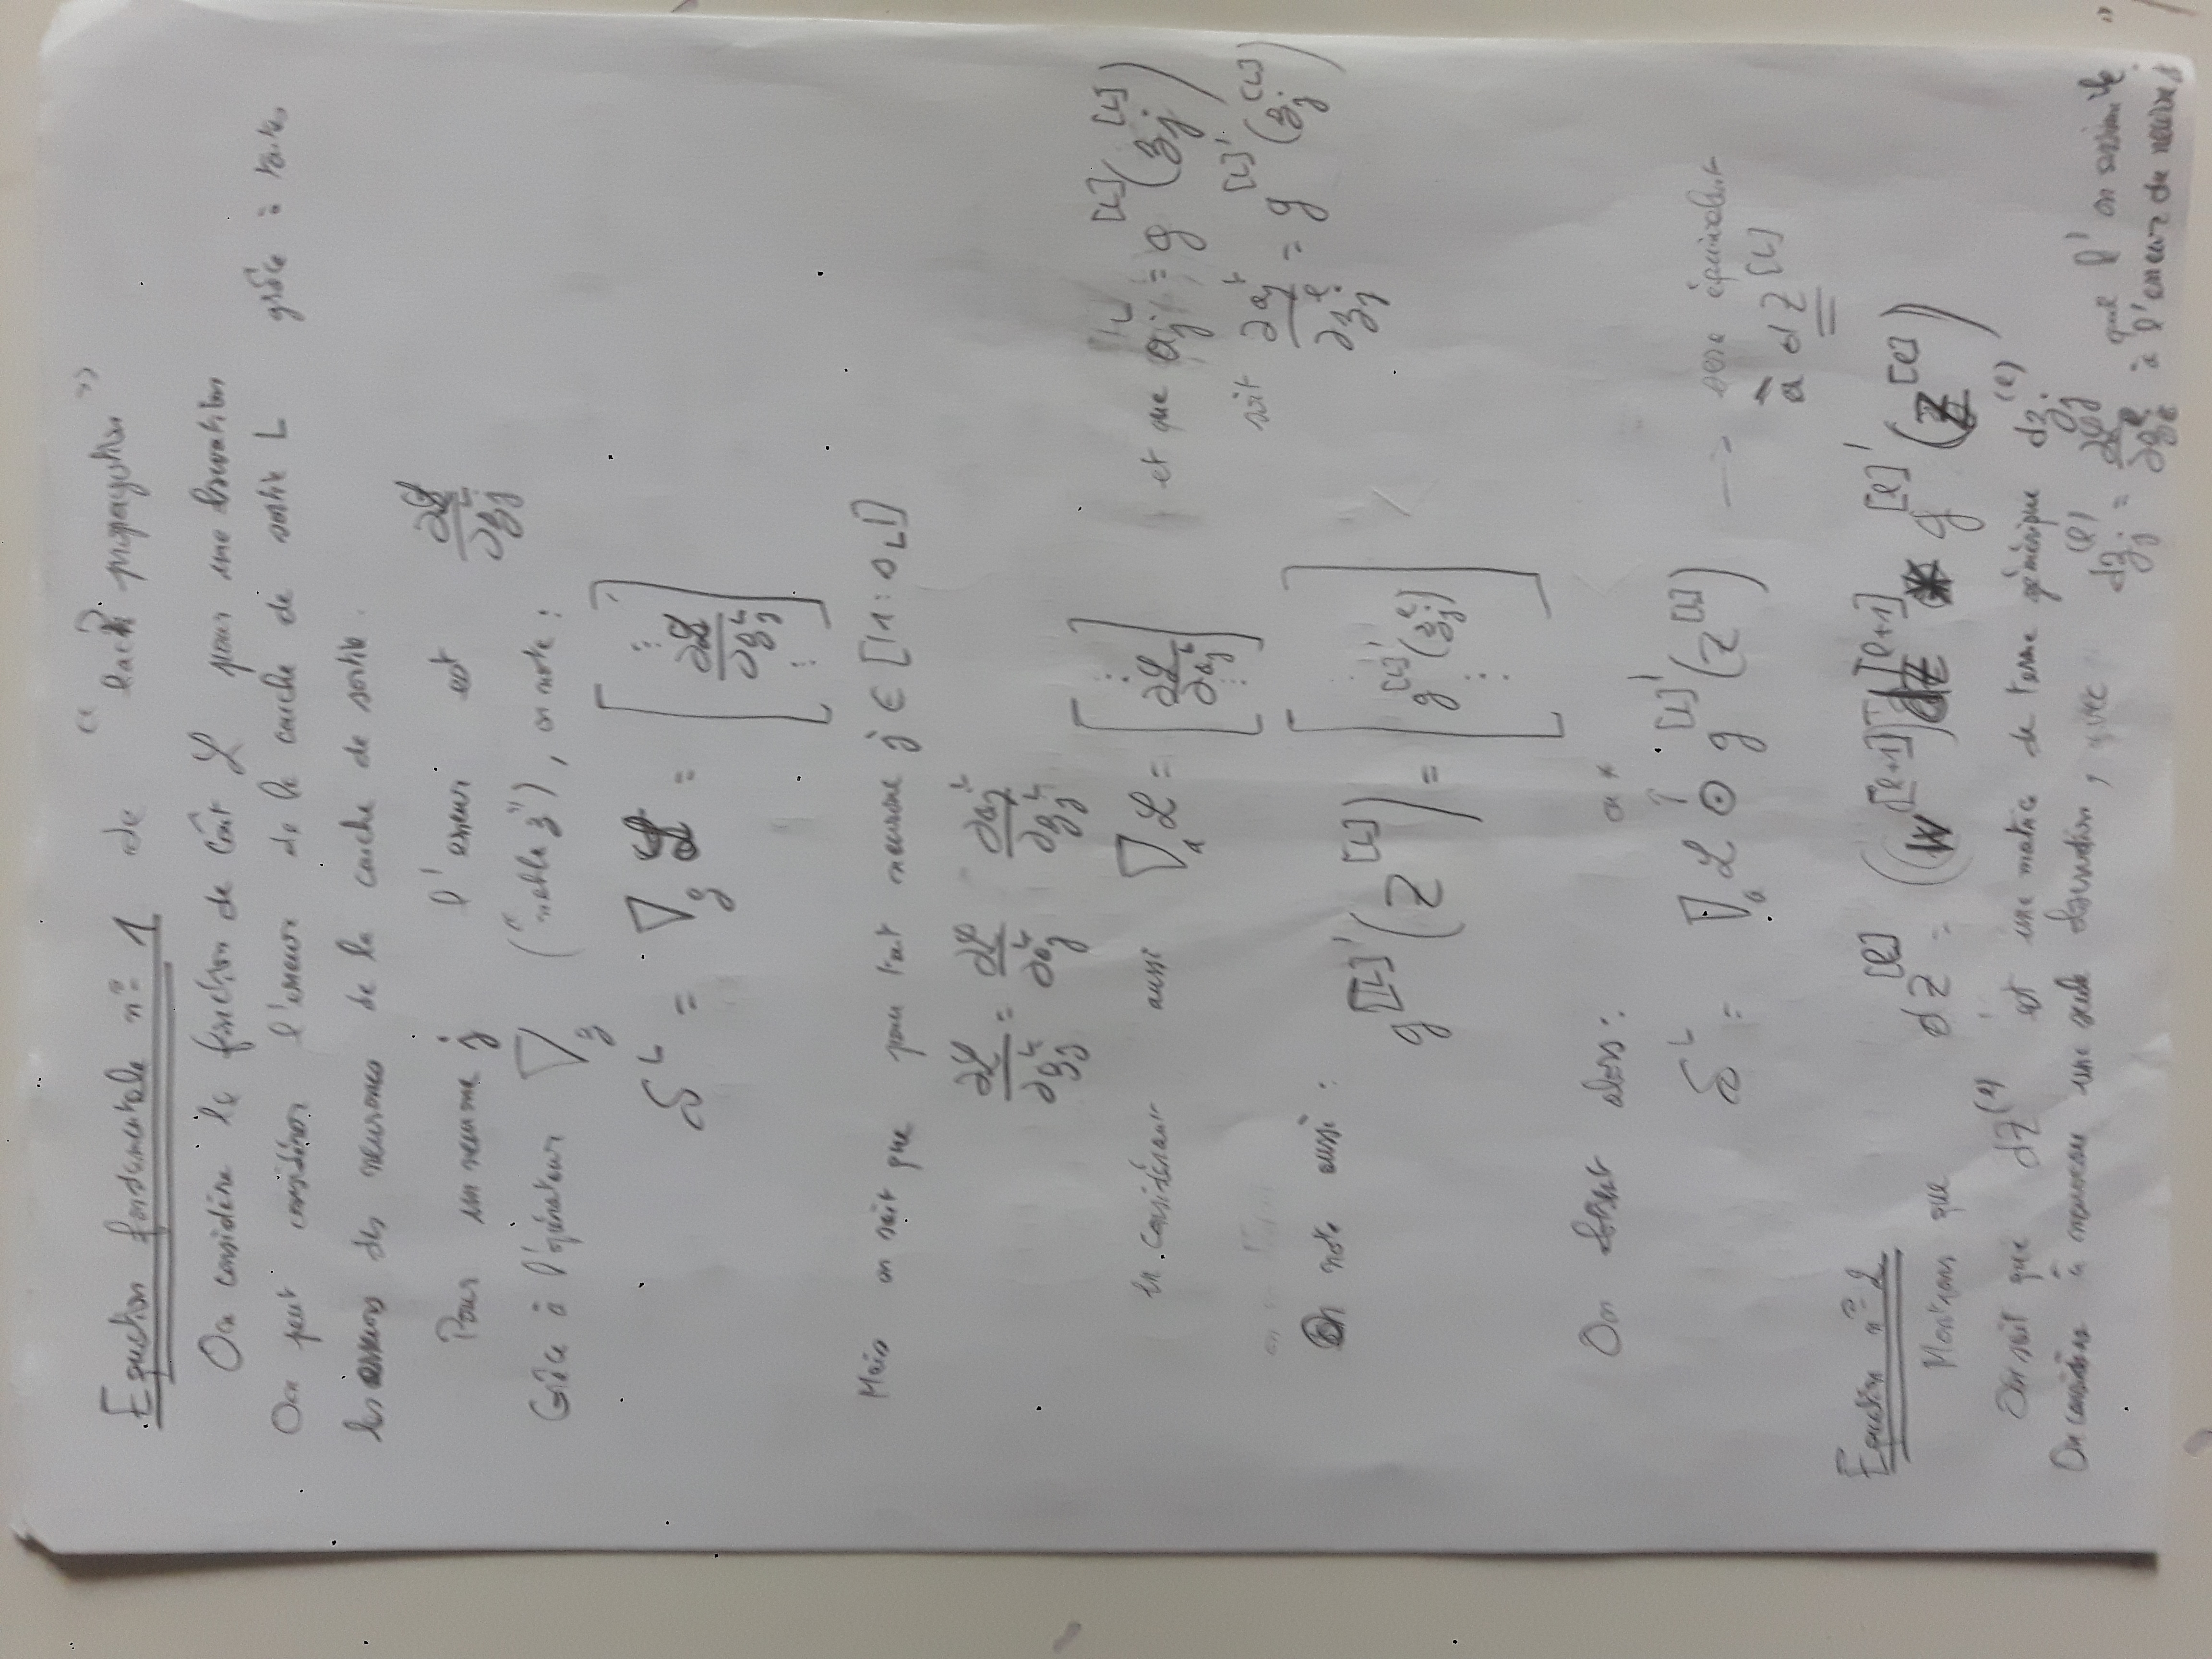 Equation fondamentale n° 1 de "back propagation"
On considère la fonction de coût ℒ pour une observation
On peut considérer l'erreur de la couche de sortie L grâce à toutes
les erreurs des neurones de la couche de sortie.
Pour un neurone j l'erreur est ∂ℒ/∂z_j^L
Grâce à l'opérateur ∇_z ("nabla z"), on note :
δ^L = ∇_z ℒ = [ ⋮ ∂ℒ/∂z_j^L ⋮ ]
Mais on sait que pour tout neurone j ∈ [|1 : s_L|]
∂ℒ/∂z_j^L = ∂ℒ/∂a_j^L ∂a_j^L/∂z_j^L
en considérant aussi ∇_a ℒ = [ ⋮ ∂ℒ/∂a_j^L ⋮ ] et que a_j^[L] = g^[L](z_j^[L])
soit ∂a_j^L/∂z_j^l = g^[L]'(z_j^[L])
On note aussi :
g^[L]'(Z^[L]) = [ ⋮ g^[L]'(z_j^l) ⋮ ]
On obtient alors : ou *
δ^L = ∇_a ℒ ⊙ g^[L]'(Z^[L]) → sera équivalent
à dZ^[L]
Equation n° 2
Montrons que dZ^[l] = (W^[l+1])^T dZ^[l+1] * g^[l]'(Z^[l])
On sait que dZ^(l) est une matrice de terme générique dz_j^(l)
On considère à nouveau une seule observation, avec dz_j^(l) = ∂ℒ/∂z_j^l que l'on assimile
à l'erreur du neurone j